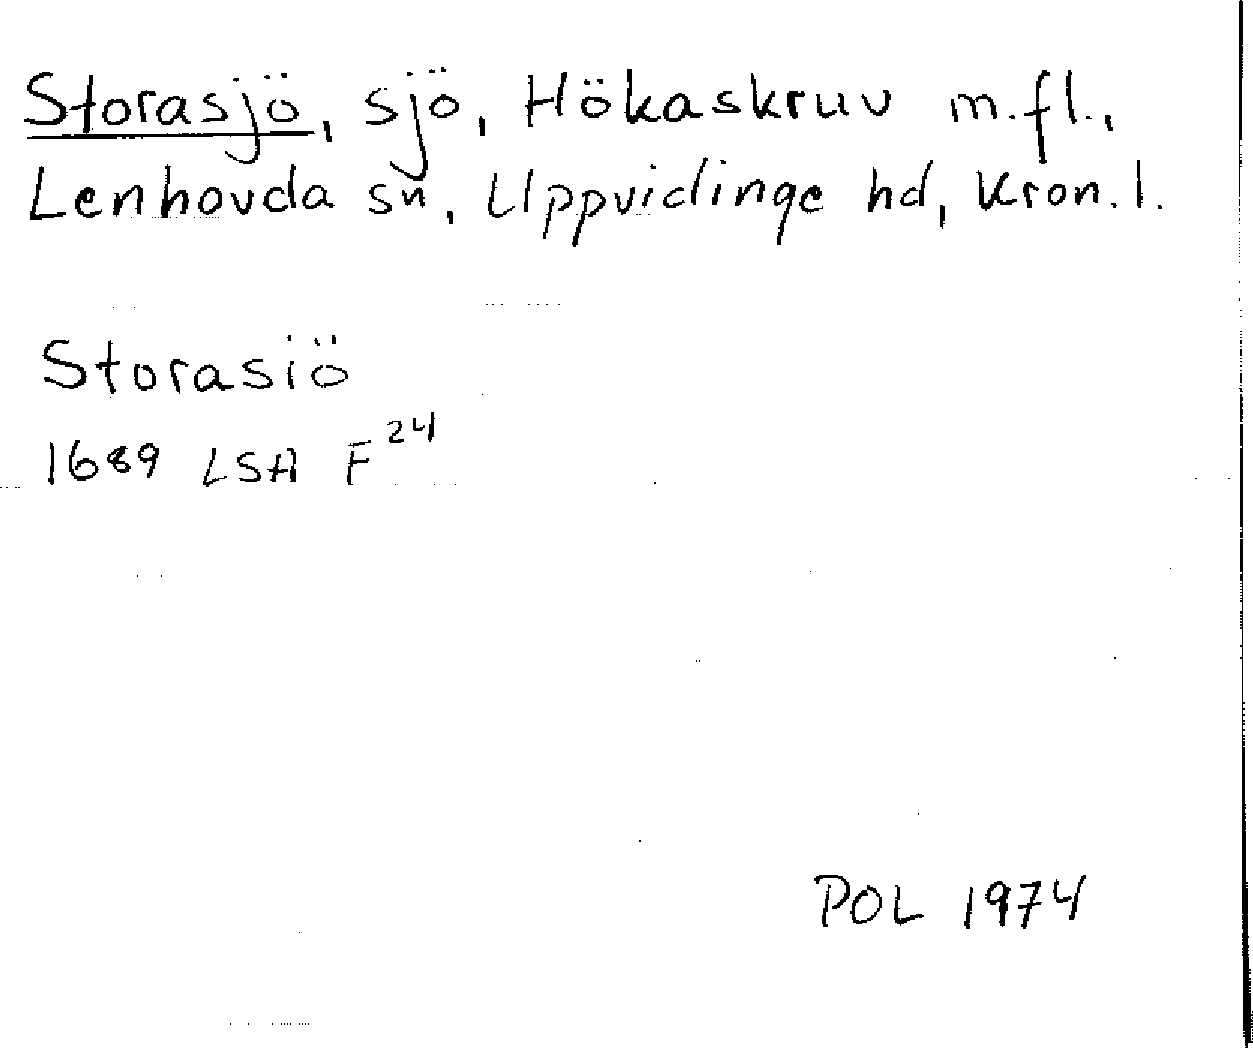 Storasjö, sjö, Hökaskruv m.fl.,
Lenhovda sn, Uppvidinge hd, Kron. l.
Storasiö
1689 LSA F 24
POL 1974